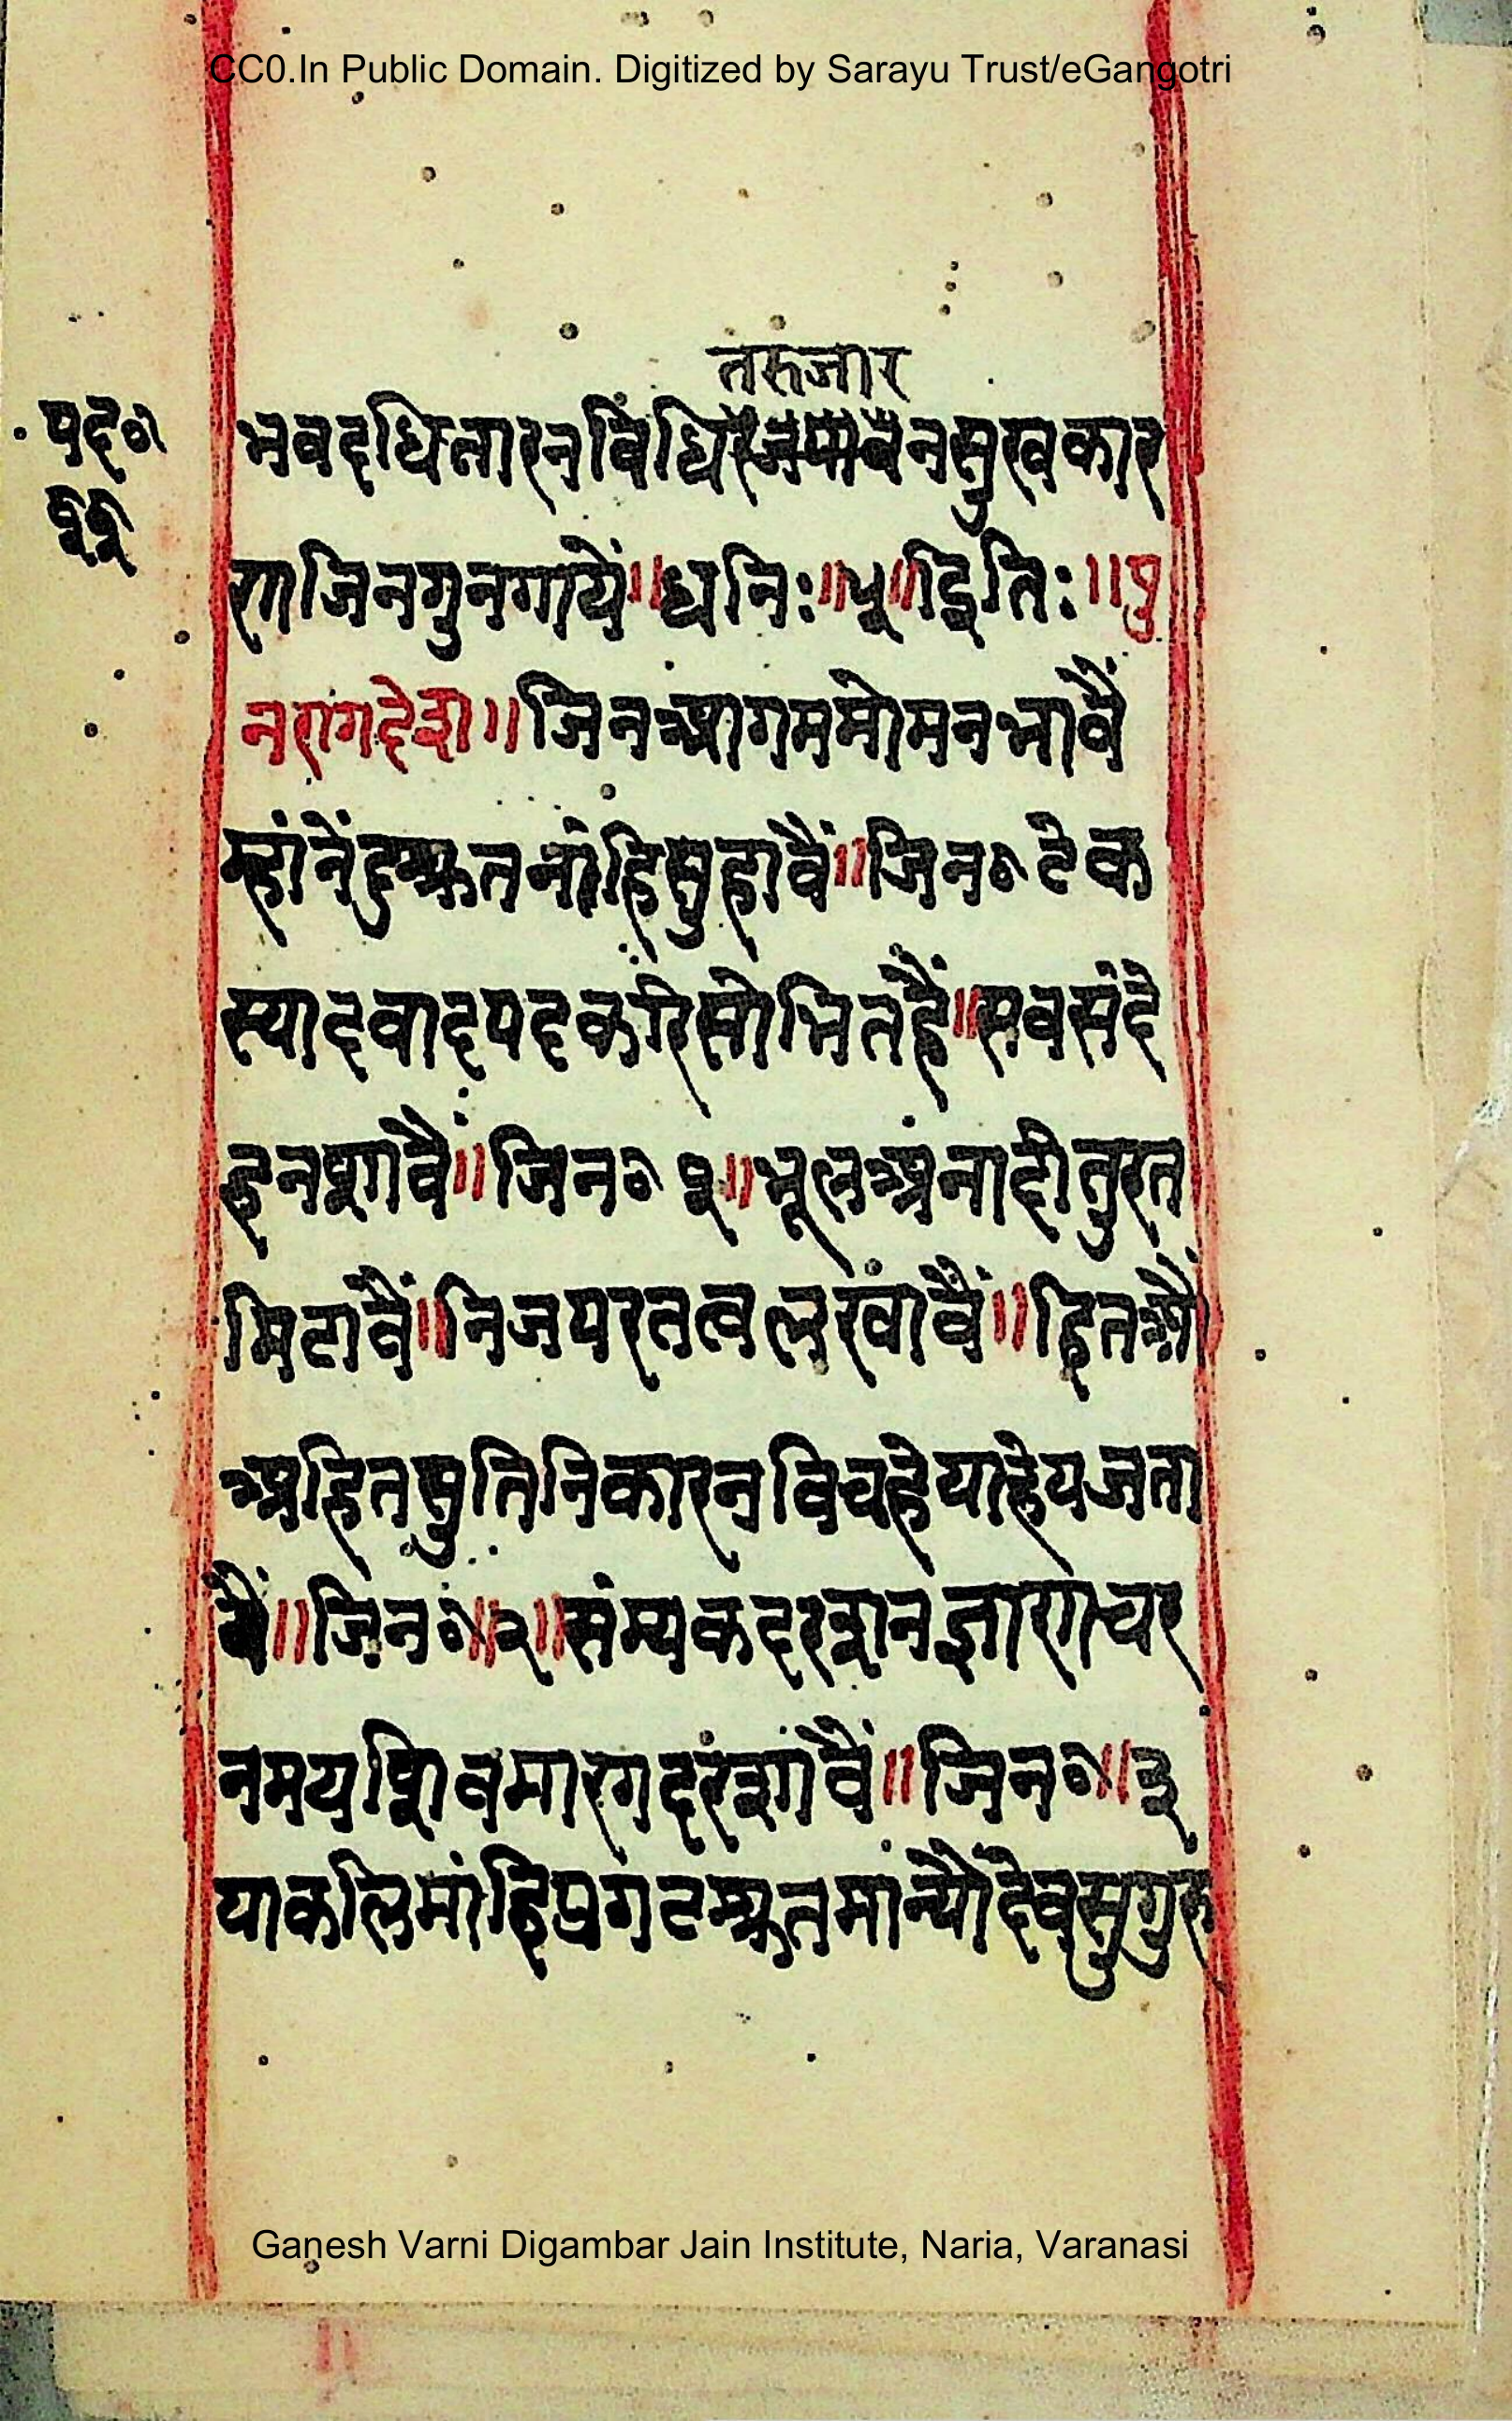 CC0.In Public Domain. Digitized by Sarayu Trust/eGangotri
तरुजार
पद०
११
भवदधितारनविंधि नसुखकार
राजिनगुनगायें॥धनिः॥५॥इतिः॥पु
नरागदेश॥जिनआगममोमनभावैं
म्हांनेंदुम्रुतनांहिसुहावैं॥जिन०टेक
स्यादवादपदकरिसोभितहैं॥सबसंदे
हनशावैं॥जिन०१॥भूलअंनादीतुरत
मिटावैं॥निजपरतत्वलखांवैं॥हितऔ
अहितसुतिनिकारनविचहेयाहेयजता
वैं॥जिन०॥२॥संम्यकदरशनज्ञाराचर
नमयशिवमारगदरंशावैं॥जिन०॥३
याकलिमांहिप्रगटम्रुतमांन्यौंदेवसुगुरु
Ganesh Varni Digambar Jain Institute, Naria, Varanasi